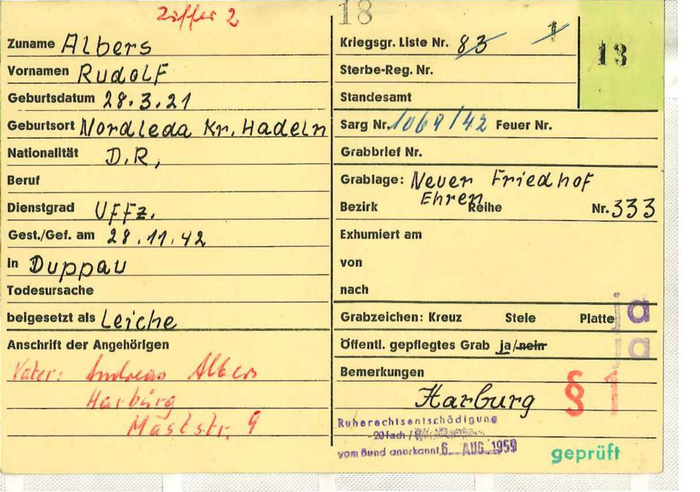 Ziffer 2
Zuname Albers
Vornamen Rudolf
Geburtsdatum 28.3.21
Geburtsort Nordleda Kr. Hadeln
Nationalität D.R,
Beruf
Dienstgrad Uffz.
Gest./Gef. am 28.11.42
in Duppau
Todesursache
beigesetzt als Leiche
Anschrift der Angehörigen
Vater: Andreas Albers
Harburg
Maststr. 9
18
Kriegsgr. Liste Nr. 83 1
13
Sterbe-Reg. Nr.
Standesamt
Sarg Nr. 1069/42 Feuer Nr.
Grabbrief Nr.
Grablage: Neuer Friedhof
Ehren
Bezirk Reihe Nr. 333
Exhumiert am
von
nach
Grabzeichen: Kreuz Stele Platte ja
Öffentl. gepflegtes Grab ja/nein ja
Bemerkungen
Harburg § 1
Ruherechtsentschädigung
20fach /
vom Bund anerkannt 6. AUG. 1959
geprüft